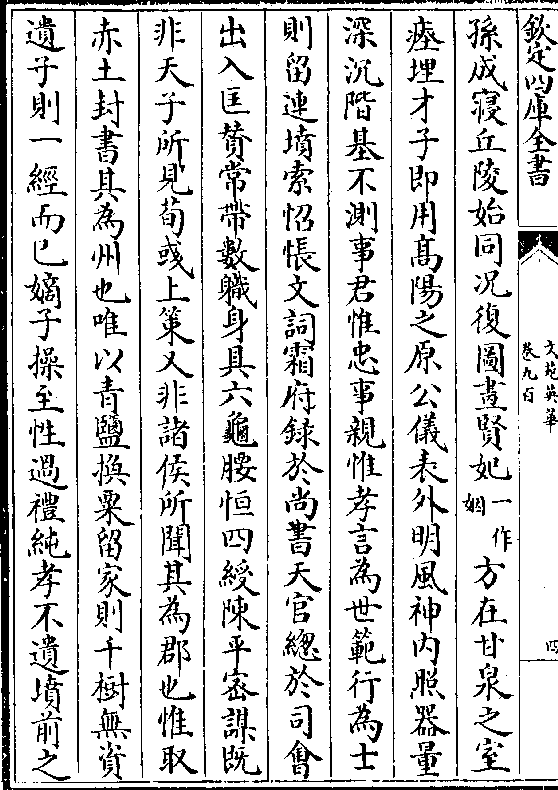 欽定四庫全書
文苑英華
卷九百
四
孫成寝丘陵始同况復圖畫賢妃一作姻方在甘泉之室
瘞埋才子即用髙陽之原公儀表外明風神内照器量
深沉階基不測事君惟忠事親惟孝言為世範行為士
則留連墳索怊悵文詞霜府録於尚書天官總於司會
出入匡贊常帶數職身具六龜腰恒四綬陳平密謀既
非天子所見荀彧上策又非諸侯所聞其為郡也惟取
赤土封書其為州也唯以青鹽換粟留家則千樹無資
遺子則一經而已嫡子操至性過禮純孝不遺墳前之